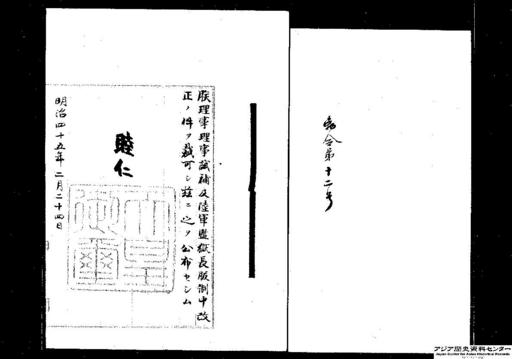 勅令第十二号
朕理事理事試補及陸軍監獄長服制中改
正ノ件ヲ裁可シ茲ニ之ヲ公布セシム
睦仁
明治四十五年二月二十四日
アジア歴史資料センター
Japan Center for Asian Historical Records